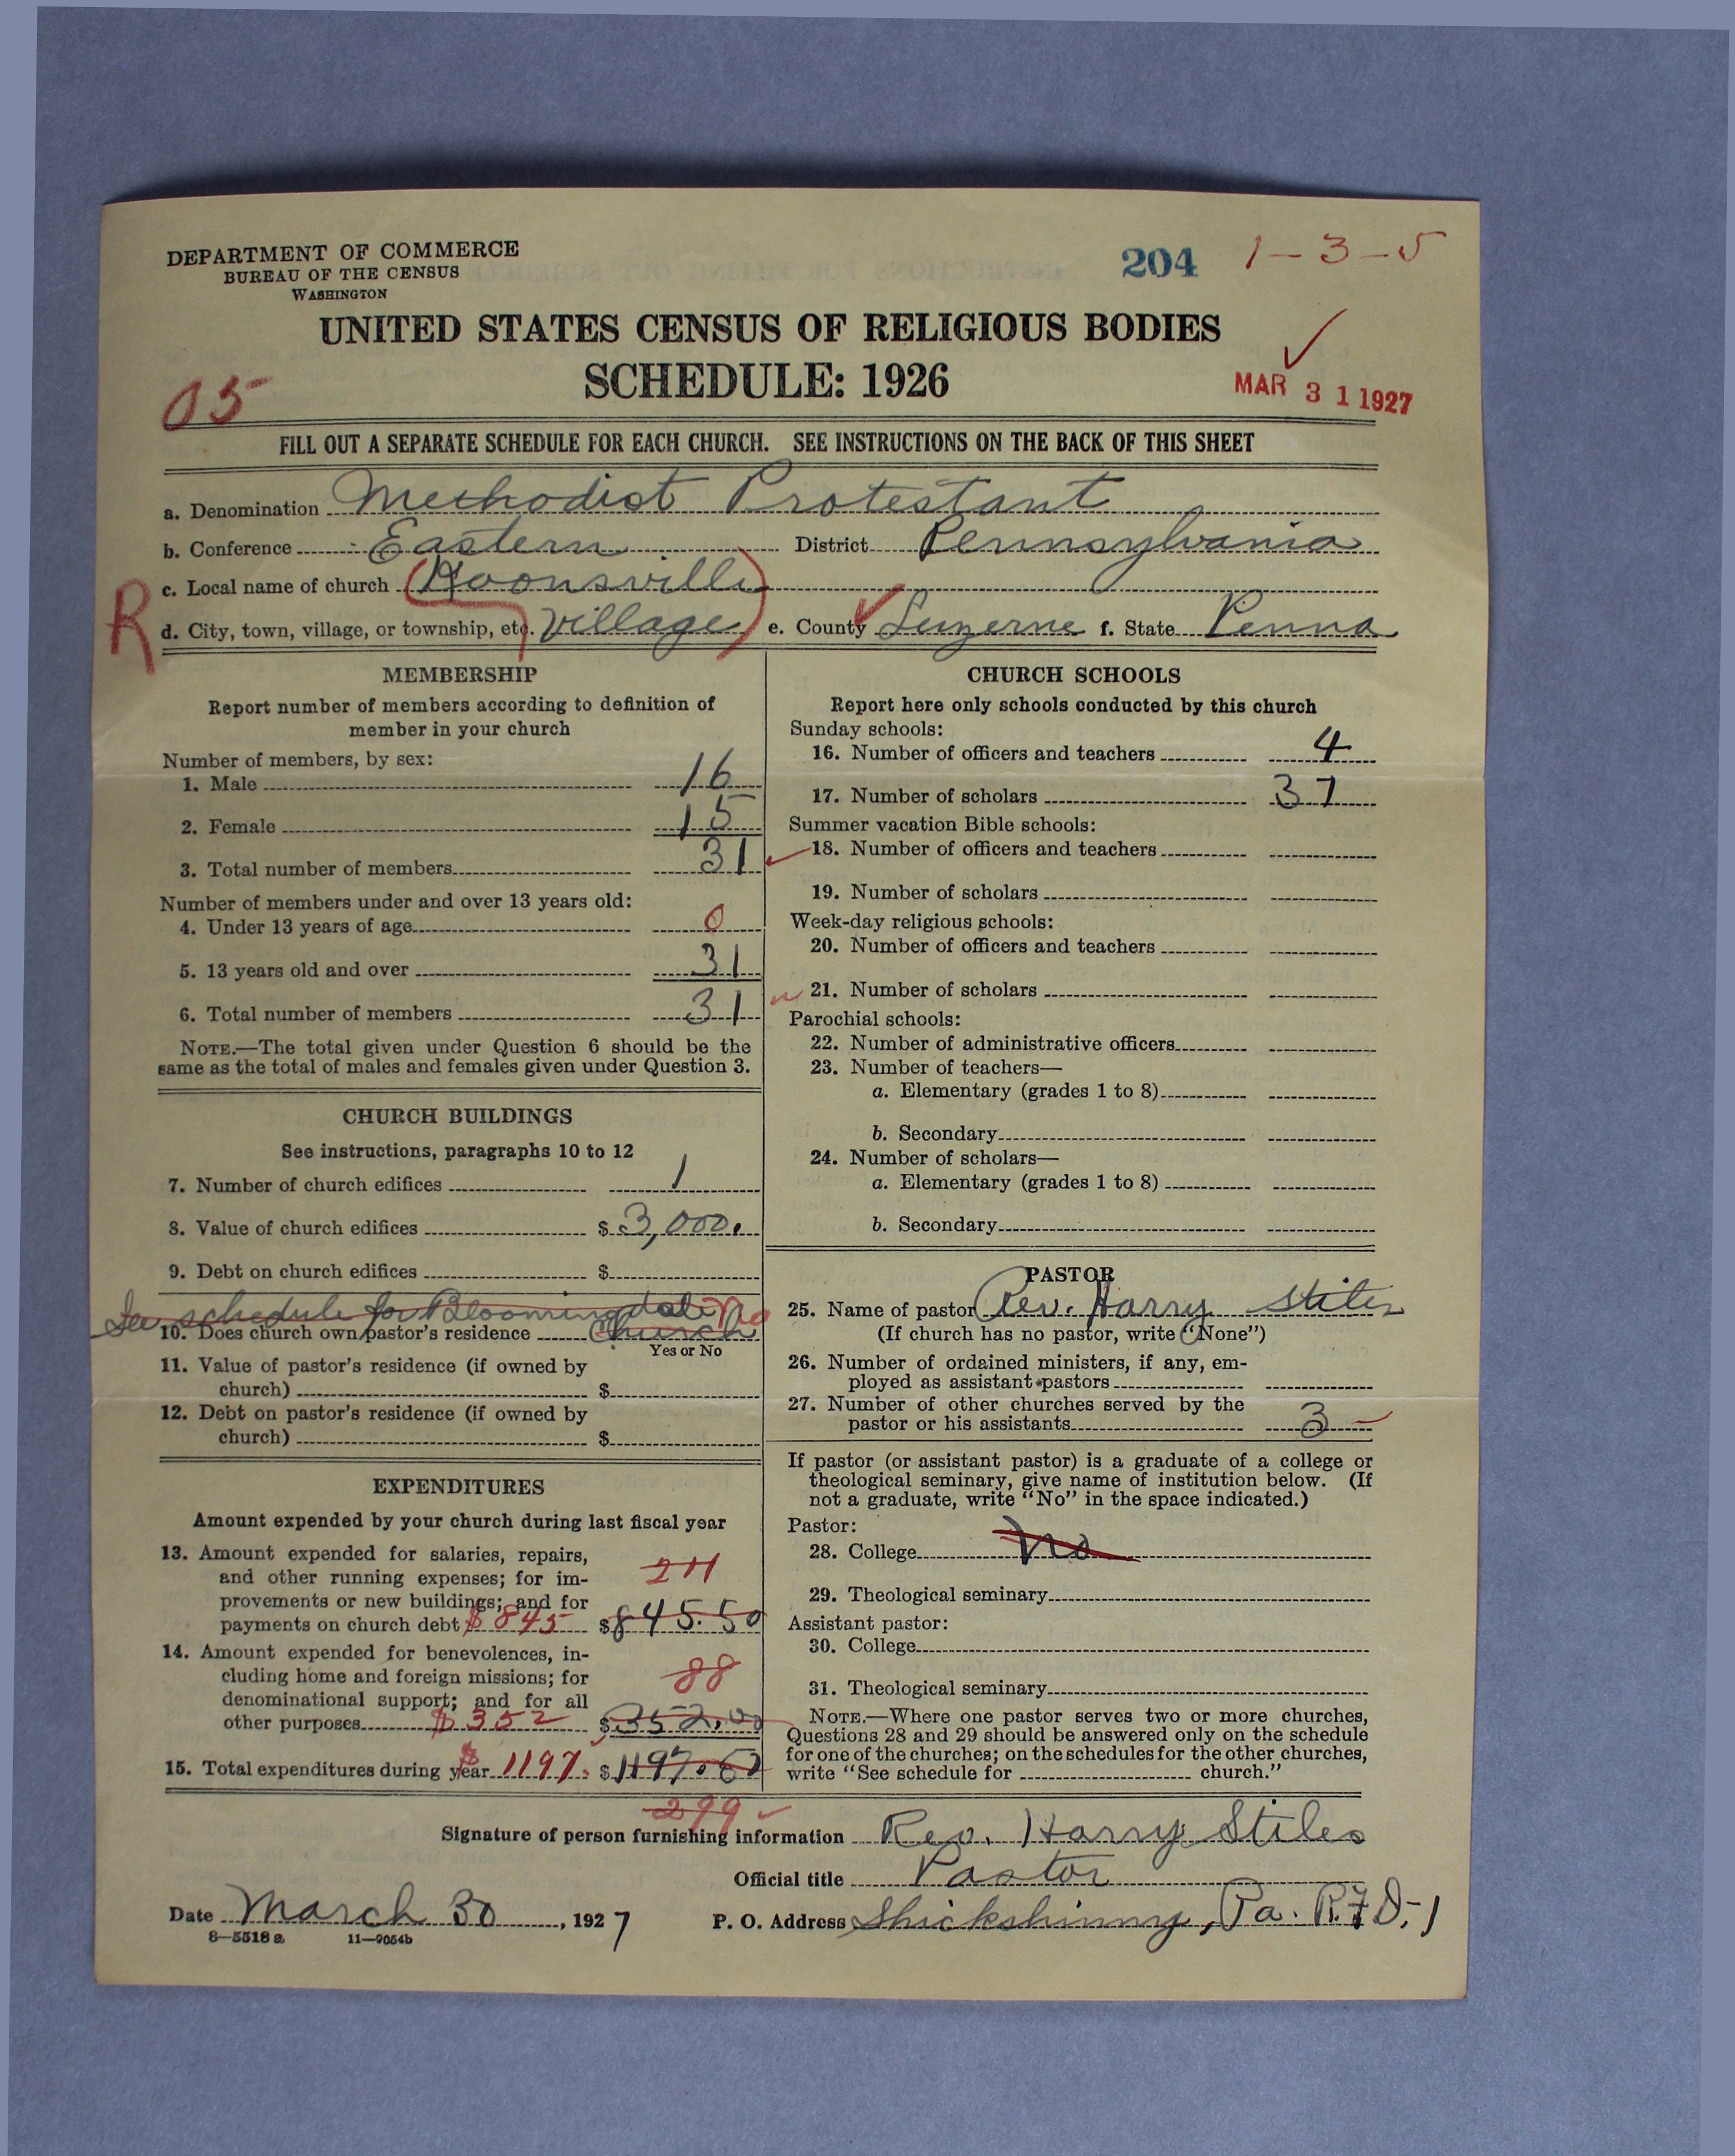 DEPARTMENT OF COMMERCE
BUREAU OF THE CENSUS
WASHINGTON
204 1-3-5
UNITED STATES CENSUS OF RELIGIOUS BODIES
SCHEDULE: 1926
05
MAR 31 1927
FILL OUT A SEPARATE SCHEDULE FOR EACH CHURCH. SEE INSTRUCTIONS ON THE BACK OF THIS SHEET
a. Denomination Methodist Protestant
b. Conference Eastern District Pennsylvania
c. Local name of church (Koonsville
R d. City, town, village, or township, etc. Village) e. County Luzerne f. State Penna
MEMBERSHIP
Report number of members according to definition of
member in your church
Number of members, by sex:
1. Male 16
2. Female 15
3. Total number of members 31
Number of members under and over 13 years old:
4. Under 13 years of age 0
5. 13 years old and over 31
6. Total number of members 31
NOTE.—The total given under Question 6 should be the
same as the total of males and females given under Question 3.
CHURCH BUILDINGS
See instructions, paragraphs 10 to 12
7. Number of church edifices 1
8. Value of church edifices $ 3,000.
9. Debt on church edifices $
See schedule for Bloomingdale No
10. Does church own pastor's residence Church
Yes or No
11. Value of pastor's residence (if owned by
church) $
12. Debt on pastor's residence (if owned by
church) $
EXPENDITURES
Amount expended by your church during last fiscal year
13. Amount expended for salaries, repairs,
and other running expenses; for im- 211
provements or new buildings; and for
payments on church debt $845 $845.50
14. Amount expended for benevolences, in-
cluding home and foreign missions; for 88
denominational support; and for all
other purposes $352 $352.00
15. Total expenditures during year $1197. $1197.50
299
CHURCH SCHOOLS
Report here only schools conducted by this church
Sunday schools:
16. Number of officers and teachers 4
17. Number of scholars 37
Summer vacation Bible schools:
18. Number of officers and teachers
19. Number of scholars
Week-day religious schools:
20. Number of officers and teachers
21. Number of scholars
Parochial schools:
22. Number of administrative officers
23. Number of teachers—
a. Elementary (grades 1 to 8)
b. Secondary
24. Number of scholars—
a. Elementary (grades 1 to 8)
b. Secondary
PASTOR
25. Name of pastor Rev. Harry Stiles
(If church has no pastor, write "None")
26. Number of ordained ministers, if any, em-
ployed as assistant pastors
27. Number of other churches served by the
pastor or his assistants 3
If pastor (or assistant pastor) is a graduate of a college or
theological seminary, give name of institution below. (If
not a graduate, write "No" in the space indicated.)
Pastor:
28. College No
29. Theological seminary
Assistant pastor:
30. College
31. Theological seminary
NOTE.—Where one pastor serves two or more churches,
Questions 28 and 29 should be answered only on the schedule
for one of the churches; on the schedules for the other churches,
write "See schedule for church."
Signature of person furnishing information Rev. Harry Stiles
Official title Pastor
Date March 30, 1927 P. O. Address Shickshinny, Pa. R.F.D.-1
8-5518 a 11-9054b